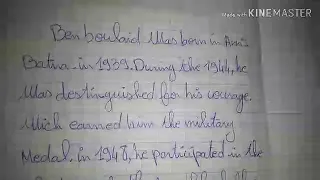 Made with KINEMASTER
Ben boulaid Was born in
Batna. in 1939. During the 1944, he
Was destinguished for his courage.
Wich earned him the military
Medal. in 1948, he participated in the